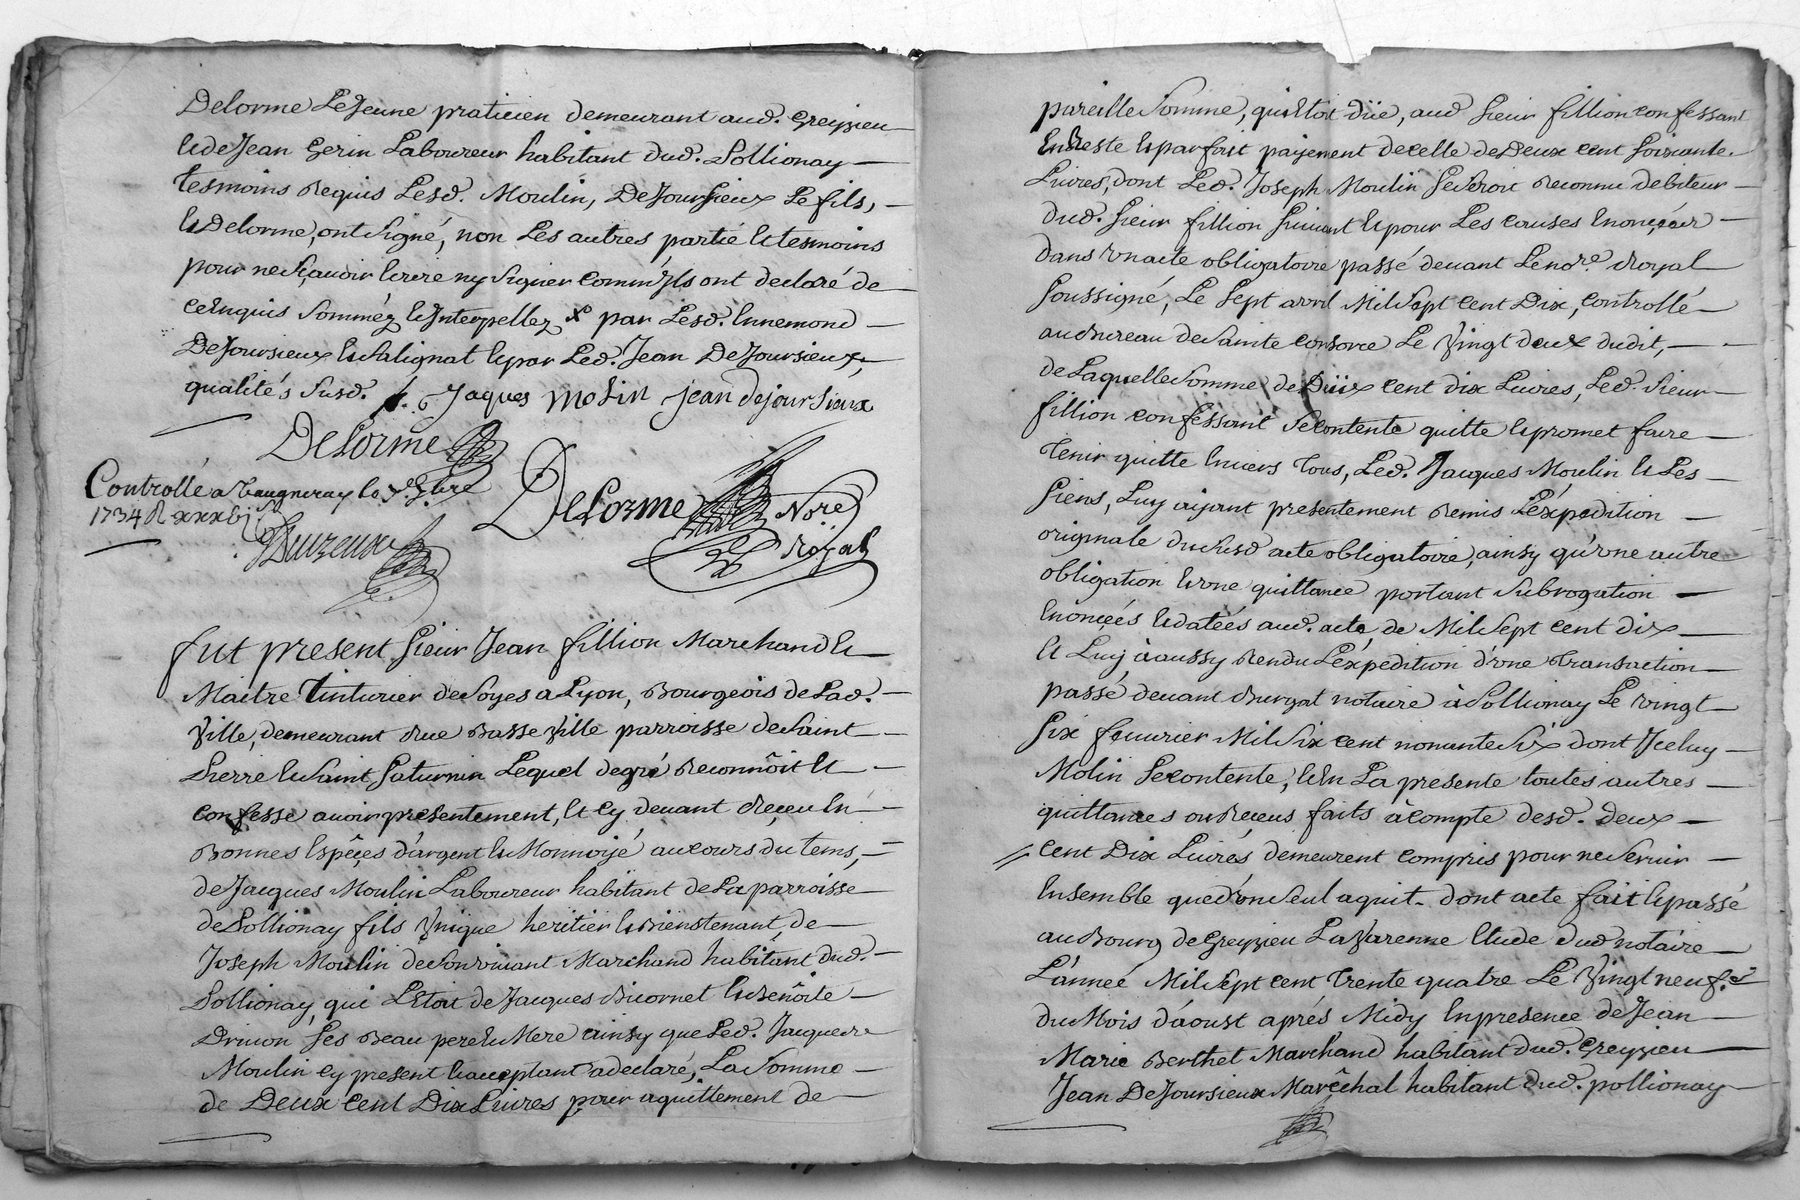 Delorme Lejeune praticien demeurant aud. Greyzieu
et de Jean Gerin Laboureur habitant dud. Pollionay
tesmoins requis Lesd. Moulin, Dejoursieux Le fils,
et Delorme, ont signé, non Les autres partie et tesmoins
pour ne sçavoir écrire ny signer comm'ils ont declaré de
ce enquis somméz et interpellez x par Lesd. Ennemond
Dejoursieux et Salignat et par Led. Jean Dejoursieux,
qualités susd. Jaques Molin Jean dejoursieux
Delorme
Delorme Nore
Royal
Controllé a Vaugneray le 7bre
1734 R xxxvi s
fut present sieur Jean fillion Marchand et
Maitre Tinturier de soyes a Lyon, Bourgeois de Lad.
Ville, demeurant rue Basse Ville parroisse de saint
Pierre et saint Saturnin Lequel degré reconnôit et
confesse avoir presentement, et cy devant reçeu en
Bonnes Espêçes d'argent et Monnoÿé au cours du tems,
de Jacques Moulin Laboureur habitant de La parroisse
de Pollionay fils Unique heritier et Bienstenant, de
Joseph Moulin de son vivant Marchand habitant dud.
Pollionay, qui L'etoit de Jacques Bicornet et Benôite
Drivon ses Beau pere et Mere ainsy que Led. Jacques
Moulin cy present et acceptant a declaré, La somme
de Deux cent Dix Livres pour aquittement de
pareille somme, qu'il toit düe, aud sieur fillion confessant
En Reste et parfait paÿement de celle de Deux cent soixante
Livres, dont Led. Joseph Moulin se seroit reconnu debiteur
dud. sieur fillion suivant et pour Les causes enonçées
dans un acte obligatoire passé devant Le nore Royal
soussigné, Le sept avril Mil sept cent Dix, controllé
au Bureau de Sainte Consorce Le Vingt deux dudit,
de Laquelle somme de Deux cent dix Livres, Led. sieur
fillion confessant se contente quitte et promet faire
tenir quitte envers tous, Led. Jacques Moulin et Les
siens, Luy aÿant presentement remis L'éxpedition
originale du susd acte obligatoire, ainsy qu'une autre
obligation et une quittance portant subrogation
enonçées et datées aud. acte de Mil sept cent dix
et Luÿ à aussy rendu L'éxpedition d'une transaction
passé devant Burgat notaire à Pollionay Le vingt
six fevurier Mil six cent nonante six dont Iceluy
Molin se contente, et en La presente toutes autres
quittances ou Reçeus faits à compte desd. deux
cent Dix Livres demeurent compris pour ne servir
ensemble que d'un seul aquit. dont acte fait et passé
au Bourg de Greyzieu La Varenne Etude dud notaire
L'année Mil sept cent trente quatre Le Vingt neuf.e
du Mois d'áoust aprés Midy en presence de Jean
Marie Berthet Marchand habitant dud. Greyzieu
Jean Dejoursieux Marêchal habitant dud. pollionay